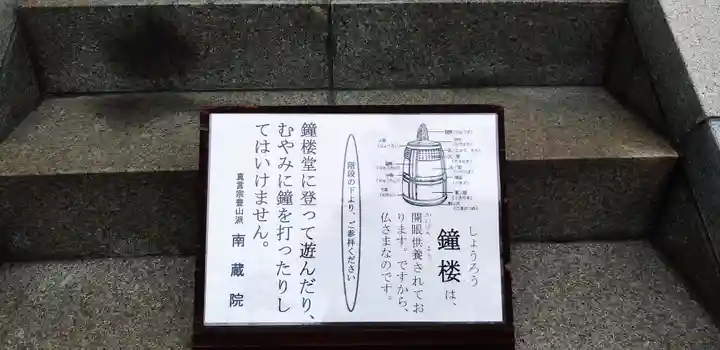 しょうろう
鐘楼は、
かいげん くよう
開眼供養されてお
ります。ですから、
仏さまなのです。
階段の下より、ご参拝ください
鐘楼堂に登って遊んだり、
むやみに鐘を打ったりし
てはいけません。
真言宗豊山派 南蔵院